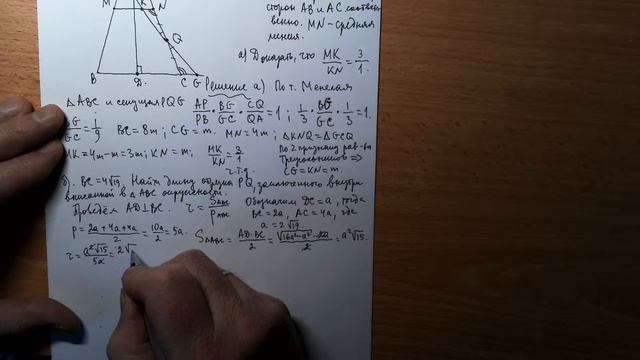 сторон AB и AC соответст-
венно. MN – средняя
линия.
M K N
Q
B D C G
а) Доказать, что MK/KN = 3/1.
Решение а) По т. Менелая
△ABC и секущая PQG AP/PB · BG/GC · CQ/QA = 1; 1/3 · BG/GC · 1/3 = 1.
BG/GC = 9/1; BC = 8m; CG = m. MN = 4m; △KNQ = △GCQ
По 2 признаку рав-ва
треугольников ⇒
CG = KN = m.
MK = 4m - m = 3m; KN = m; MK/KN = 3/1
ч.т.д.
б) BC = 4√19. Найти длину отрезка PQ, заключенного внутри
вписанной в △ABC окружности.
Проведём AD⊥BC. r = S△ABC/P△ABC Обозначим DC = a, тогда
BC = 2a, AC = 4a, где
a = 2√19.
P = (2a+4a+4a)/2 = 10a/2 = 5a. S△ABC = AD·BC/2 = a²√15.
r = a²√15/5a = 2√